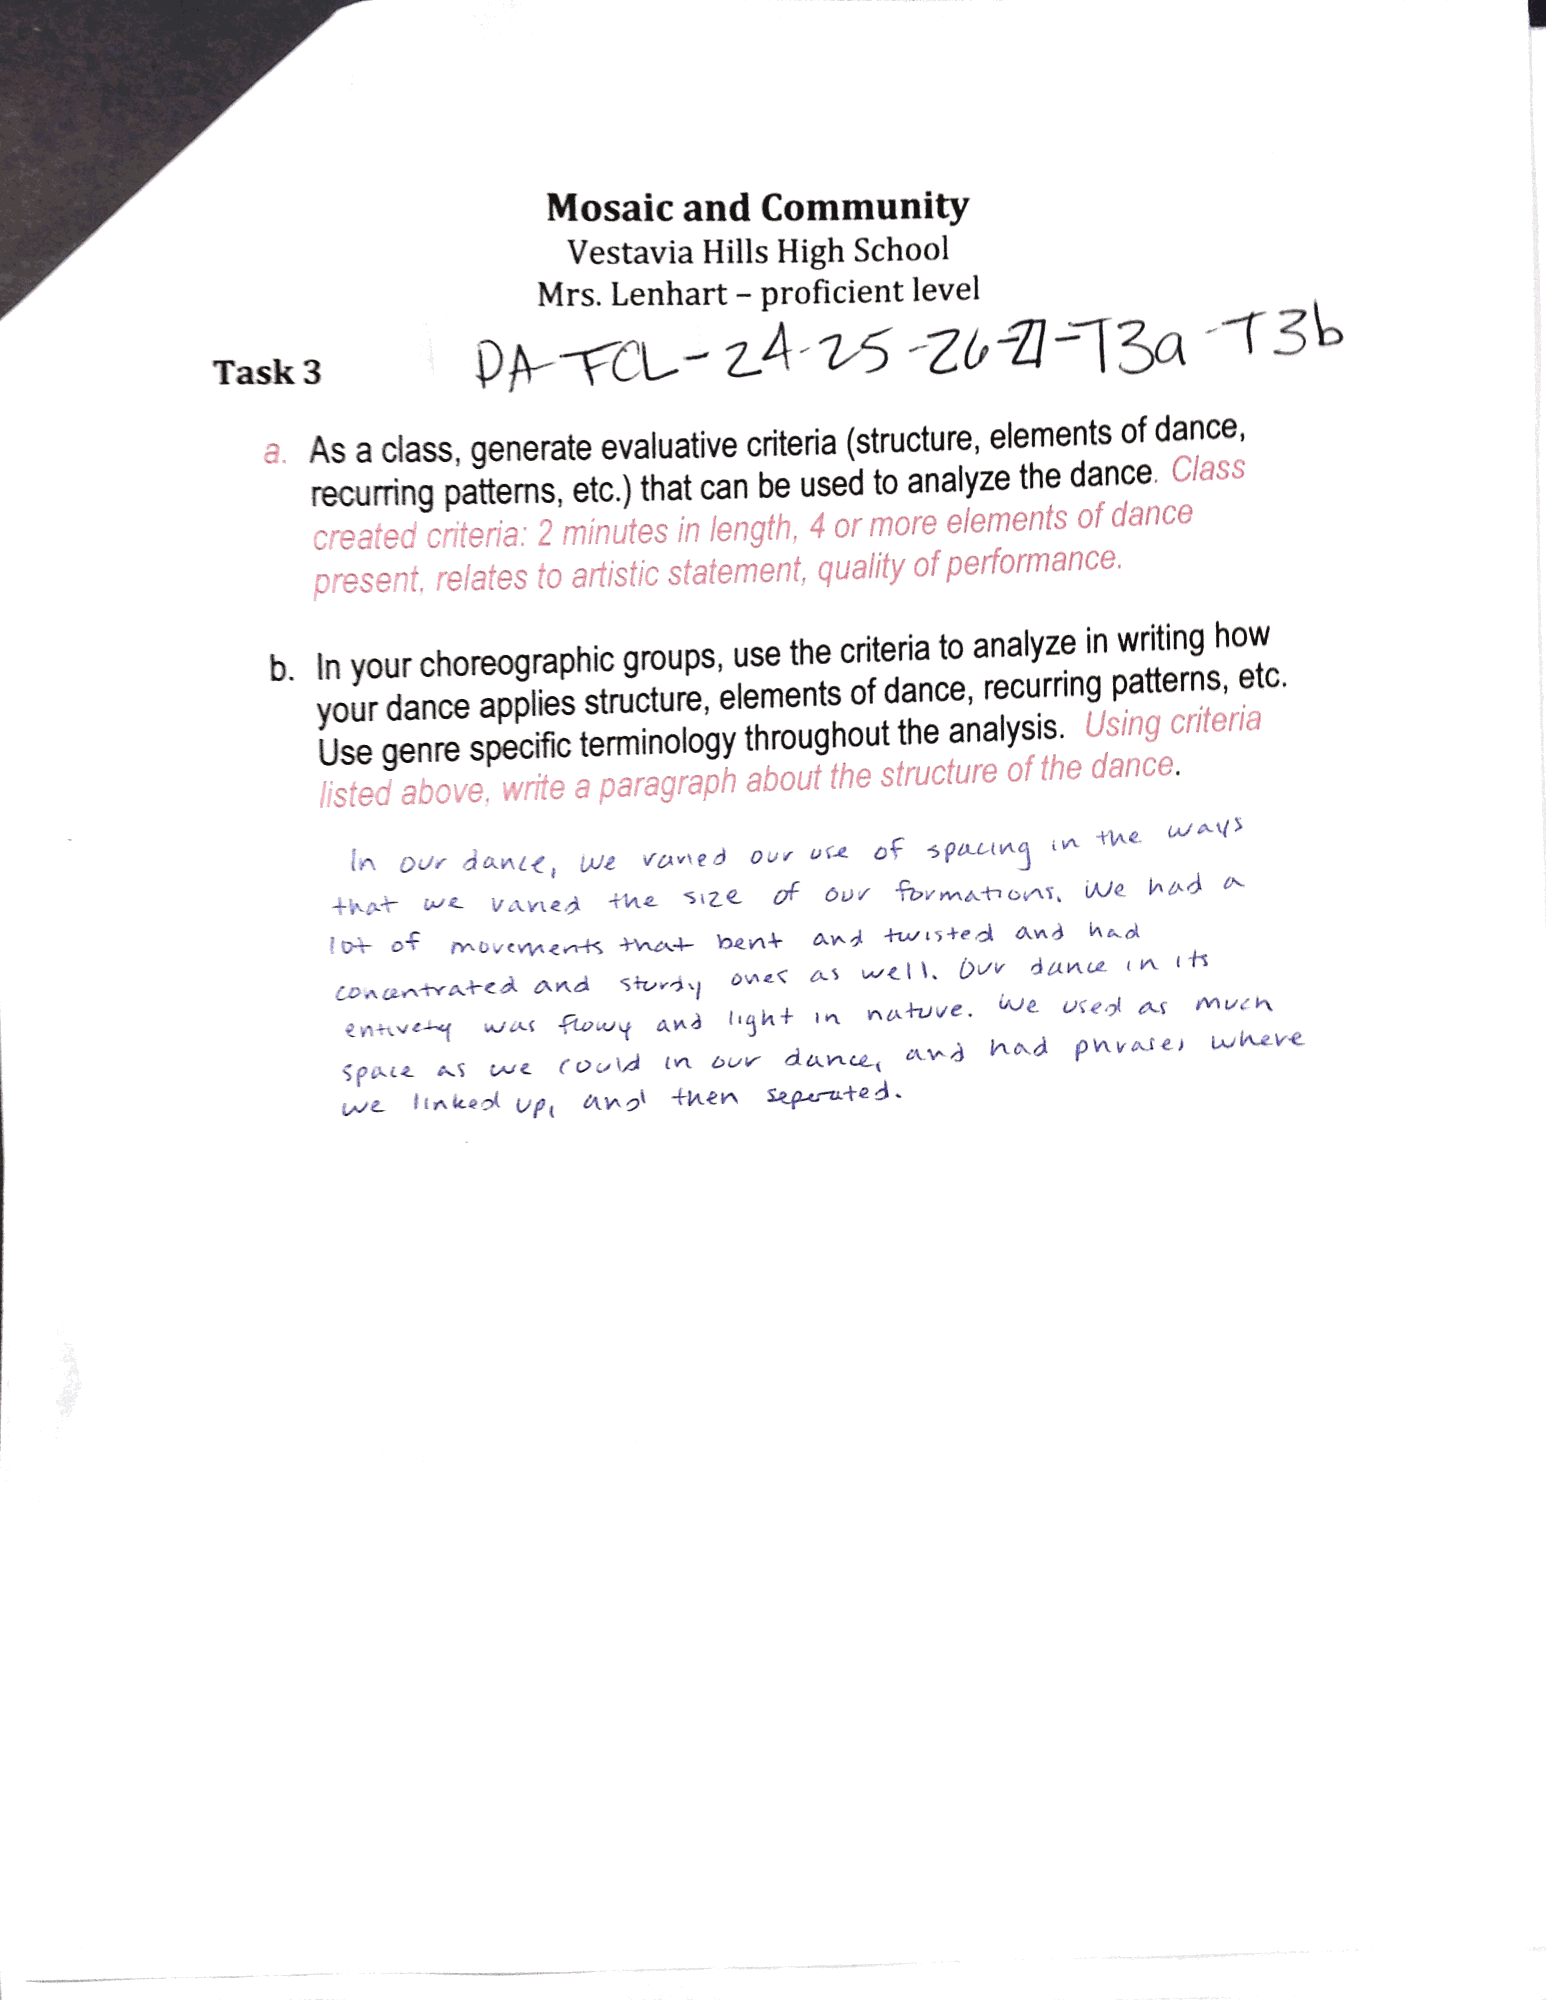 Mosaic and Community
Vestavia Hills High School
Mrs. Lenhart – proficient level
Task 3
DA-FCL-24-25-26-27-T3a-T3b
a. As a class, generate evaluative criteria (structure, elements of dance,
recurring patterns, etc.) that can be used to analyze the dance. Class
created criteria: 2 minutes in length, 4 or more elements of dance
present, relates to artistic statement, quality of performance.
b. In your choreographic groups, use the criteria to analyze in writing how
your dance applies structure, elements of dance, recurring patterns, etc.
Use genre specific terminology throughout the analysis. Using criteria
listed above, write a paragraph about the structure of the dance.
In our dance, we varied our use of spacing in the ways
that we varied the size of our formations. We had a
lot of movements that bent and twisted and had
concentrated and sturdy ones as well. Our dance in its
entirety was flowy and light in nature. We used as much
space as we could in our dance, and had phrases where
we linked up, and then seperated.